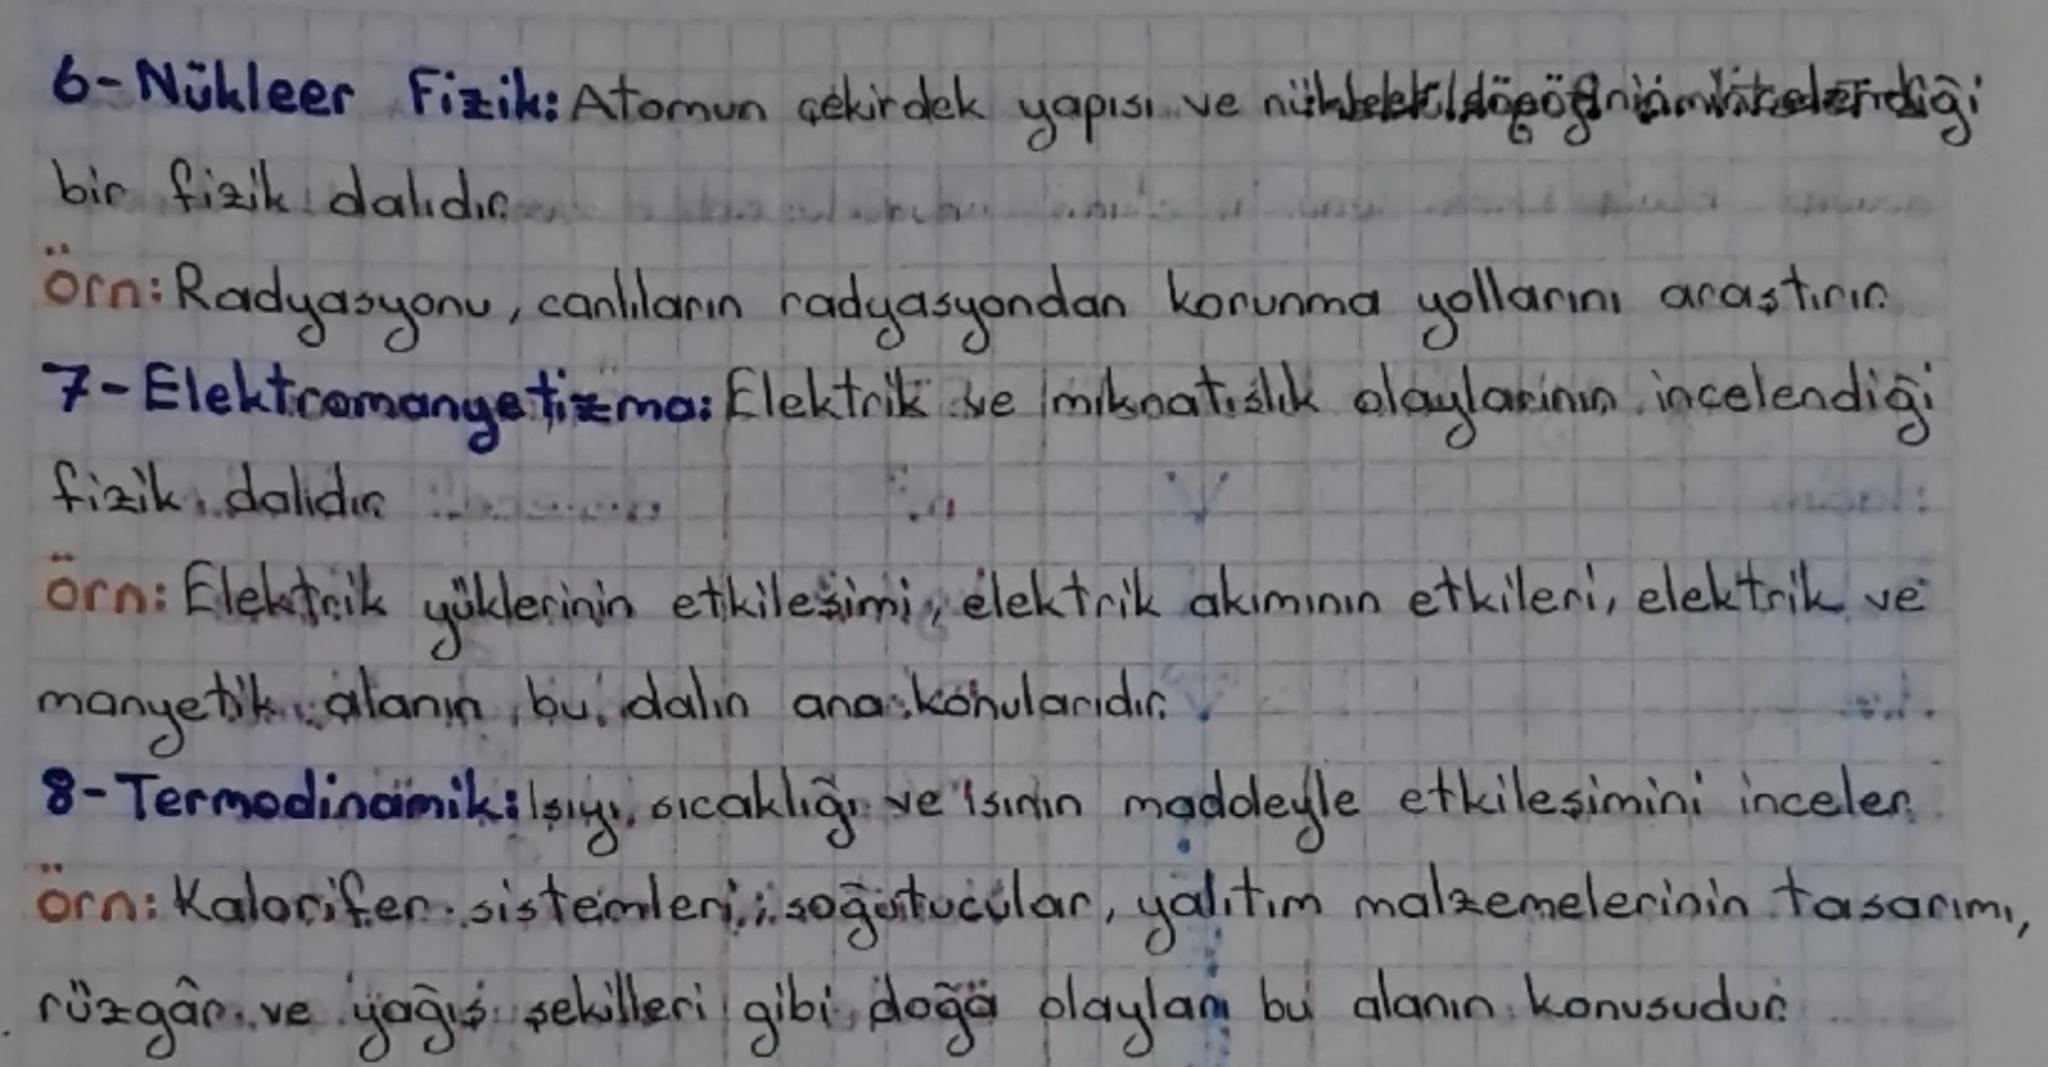 6-Nükleer Fizik: Atomun çekirdek yapısı ve
bir fizik dalıdır.
Örn: Radyasyonu, canlıların radyasyondan korunma yollarını araştırır.
7-Elektromangetizma: Elektrik ve mıknatıslık olaylarının incelendiği
fizik dalıdır.
Örn: Elektrik yüklerinin etkileşimi, elektrik akımının etkileri, elektrik ve
manyetik alanın bu dalın ana konularıdır.
8-Termodinamik: Isıyı, sıcaklığı ve ısının maddeyle etkileşimini inceler.
Örn: Kalorifer sistemleri, soğutucular, yalıtım malzemelerinin tasarımı,
rüzgâr ve yağış şekilleri gibi doğa olayları bu alanın konusudur.